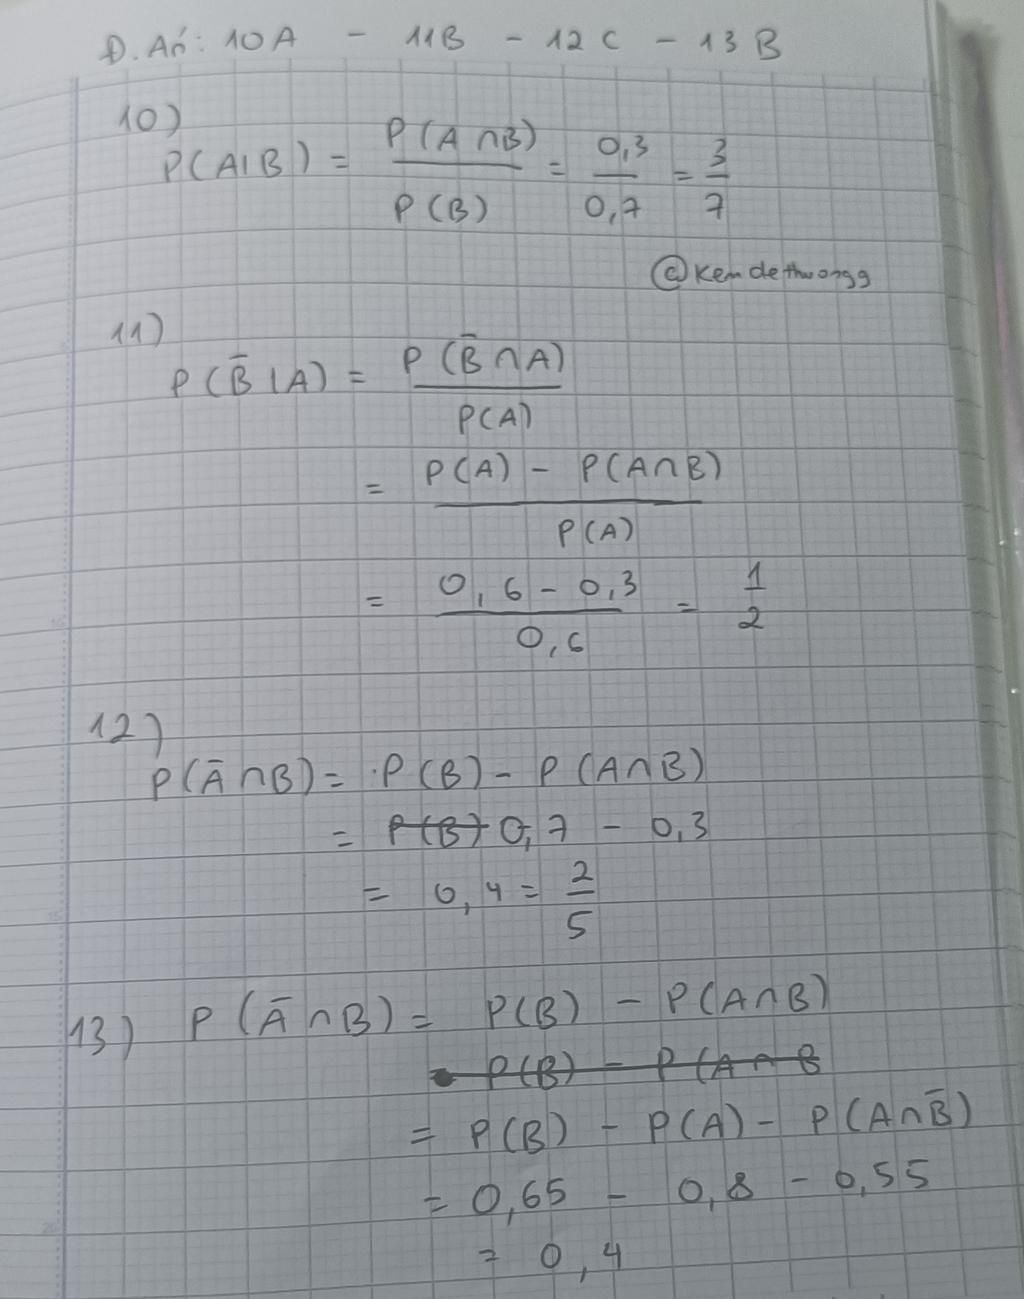 Đ. Án: 10A - 11B - 12C - 13B
10)
P(A|B) = P(A∩B) / P(B) = 0,3 / 0,7 = 3 / 7
@kemdethwongg
11)
P(B̄|A) = P(B̄∩A) / P(A)
= P(A) - P(A∩B) / P(A)
= 0,6 - 0,3 / 0,6 = 1 / 2
12)
P(Ā∩B) = P(B) - P(A∩B)
= P(B) 0,7 - 0,3
= 0,4 = 2 / 5
13) P(Ā∩B) = P(B) - P(A∩B)
P(B) - P(A∩B
= P(B) - P(A) - P(A∩B̄)
= 0,65 - 0,8 - 0,55
= 0,4